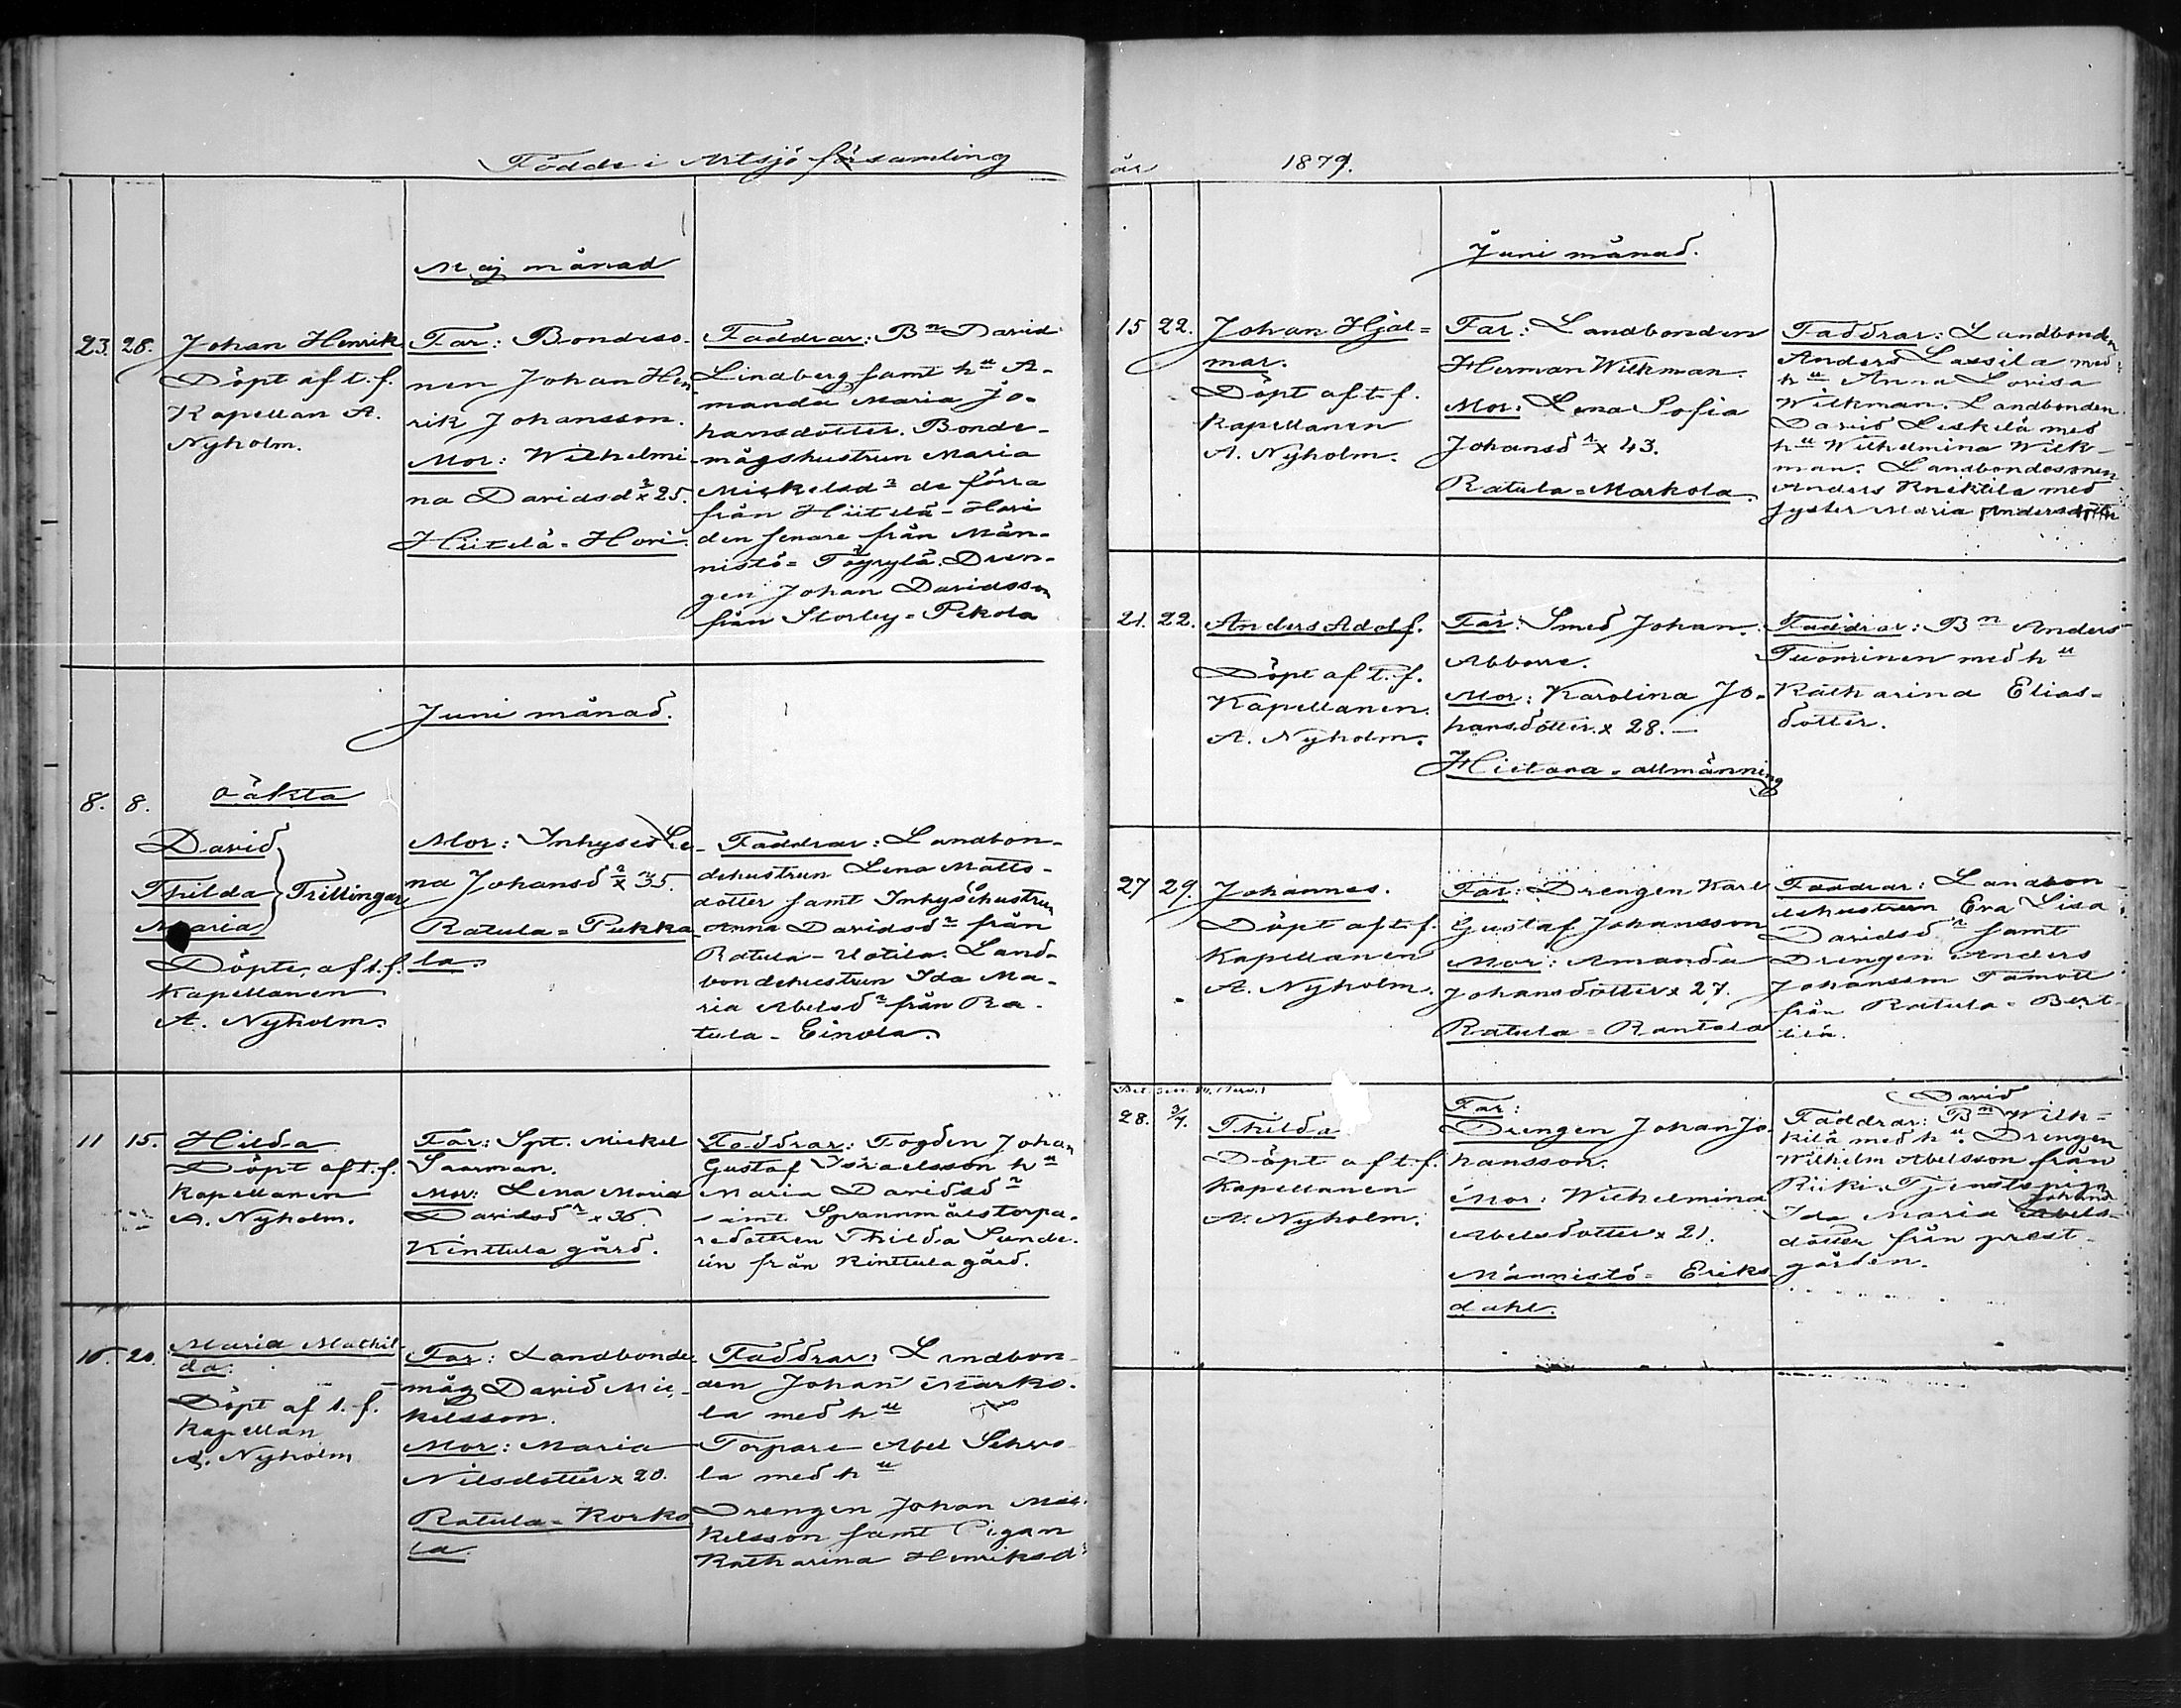 Födde i Artsjö församling
Maj månad
23. 28. Johan Henrik
Döpt af t. f.
Kapellan A.
Nyholm.
Far: Bondeso-
nen Johan Hen
rik Johansson.
Mor: Wilhelmi
na Davidsd r x 25.
Hiitelä = Hovi.
Faddrar: Bn David
Lindberg samt hu A-
manda Maria Jo-
hansdotter. Bonde-
mågshustrun Maria
Mickelsd r de förra
från Hiitelä - Hovi
den senare från Män-
nistö = Töyrylä. Dren-
gen Johan Davidsson
från Storby = Pekola
Juni månad.
8. 8. oäkta
David
Thilda } Trillingar
Maria
Döpte af t. f.
Kapellanen
A. Nyholm.
Mor: Inhyses Le-
na Johansd r x 35.
Ratula = Pukka
la.
Faddrar: Landbon-
dehustrun Lena Matts-
dotter samt Inhyshustrun
Anna Davidsd r från
Ratula - Uotila. Land-
bondehustrun Ida Ma-
ria Abelsd r från Ra-
tula - Einola.
11 15. Hilda
Döpt af t. f.
Kapellanen
A. Nyholm.
Far: Spt. Mickel
Saarman.
Mor: Lena Maria
Davidsd r x 36.
Kinttula gård.
Faddrar: Fogden Johan
Gustaf Israelsson hu
Maria Davidsd r
samt Spannmålstorpa-
redottren Thilda Sunde-
lin från Kinttula gård.
16. 20. Maria Mathil
da.
Döpt af t. f.
Kapellan
A. Nyholm
Far: Landbonde
måg David Mic-
kelsson.
Mor: Maria
Nilsdotter x 20.
Ratula = Korko
la.
Faddrar: Landbon-
den Johan Marko-
la med hu
Torpare Abel
la med hu
Drengen Johan Mic-
kelsson samt Pigan
Katharina Henriksd
år 1879.
Juni månad.
15 22. Johan Hjal=
mar.
Döpt af t. f.
Kapellanen
A. Nyholm.
Far: Landbonden
Herman Wilkman.
Mor: Lena Sofia
Johansd r x 43.
Ratula = Markola.
Faddrar: Landbonden
Anders Lassila med
hu Anna Lovisa
Wilkman. Landbonden
David Leskelä med
hu Wilhelmina Wilk-
man. Landbondesonen
Anders Knektilä med
syster Maria Andersdotter
21. 22. Anders Adolf.
Döpt af t. f.
Kapellanen.
A. Nyholm.
Far: Smed Johan
Abborre.
Mor: Karolina Jo-
hansdotter x 28.
Hietana = allmänning
Faddrar: Bn Anders
Tuominen med hu
Katharina Elias-
dotter.
27 29. Johannes.
Döpt af t. f.
Kapellanen
A. Nyholm.
Far: Drengen Karl
Gustaf Johansson
Mor: Amanda
Johansdotter x 27.
Ratula = Rantala
Faddrar: Landbon
dehustrun Eva Lisa
Davidsd r samt
Drengen Anders
Johansson
från Ratula = Bert-
tilä.
28. 3/7. Thilda
Döpt af t. f.
Kapellanen
A. Nyholm.
Far:
Drengen Johan Jo-
hansson.
Mor: Wilhelmina
Abelsdotter x 21.
Männistö = Eriks-
dahl.
David
Faddrar: Bn Wilk-
kilä med hu. Drengen
Wilhelm Abelsson från
Riiki. Tjenstepigan
Johans
Ida Maria Abels-
dotter från prest-
gården.